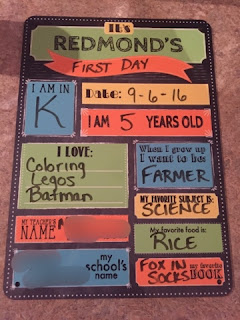 It's
REDMOND'S
FIRST DAY
I AM IN
K
Date: 9-6-16
I AM 5 YEARS OLD
I LOVE:
Coloring
Legos
Batman
When I grow up
I want to be:
FARMER
MY FAVORITE SUBJECT IS:
SCIENCE
MY TEACHER'S
NAME
My favorite food is:
RICE
my
school's
name
FOX IN
SOCKS
my favorite
BOOK